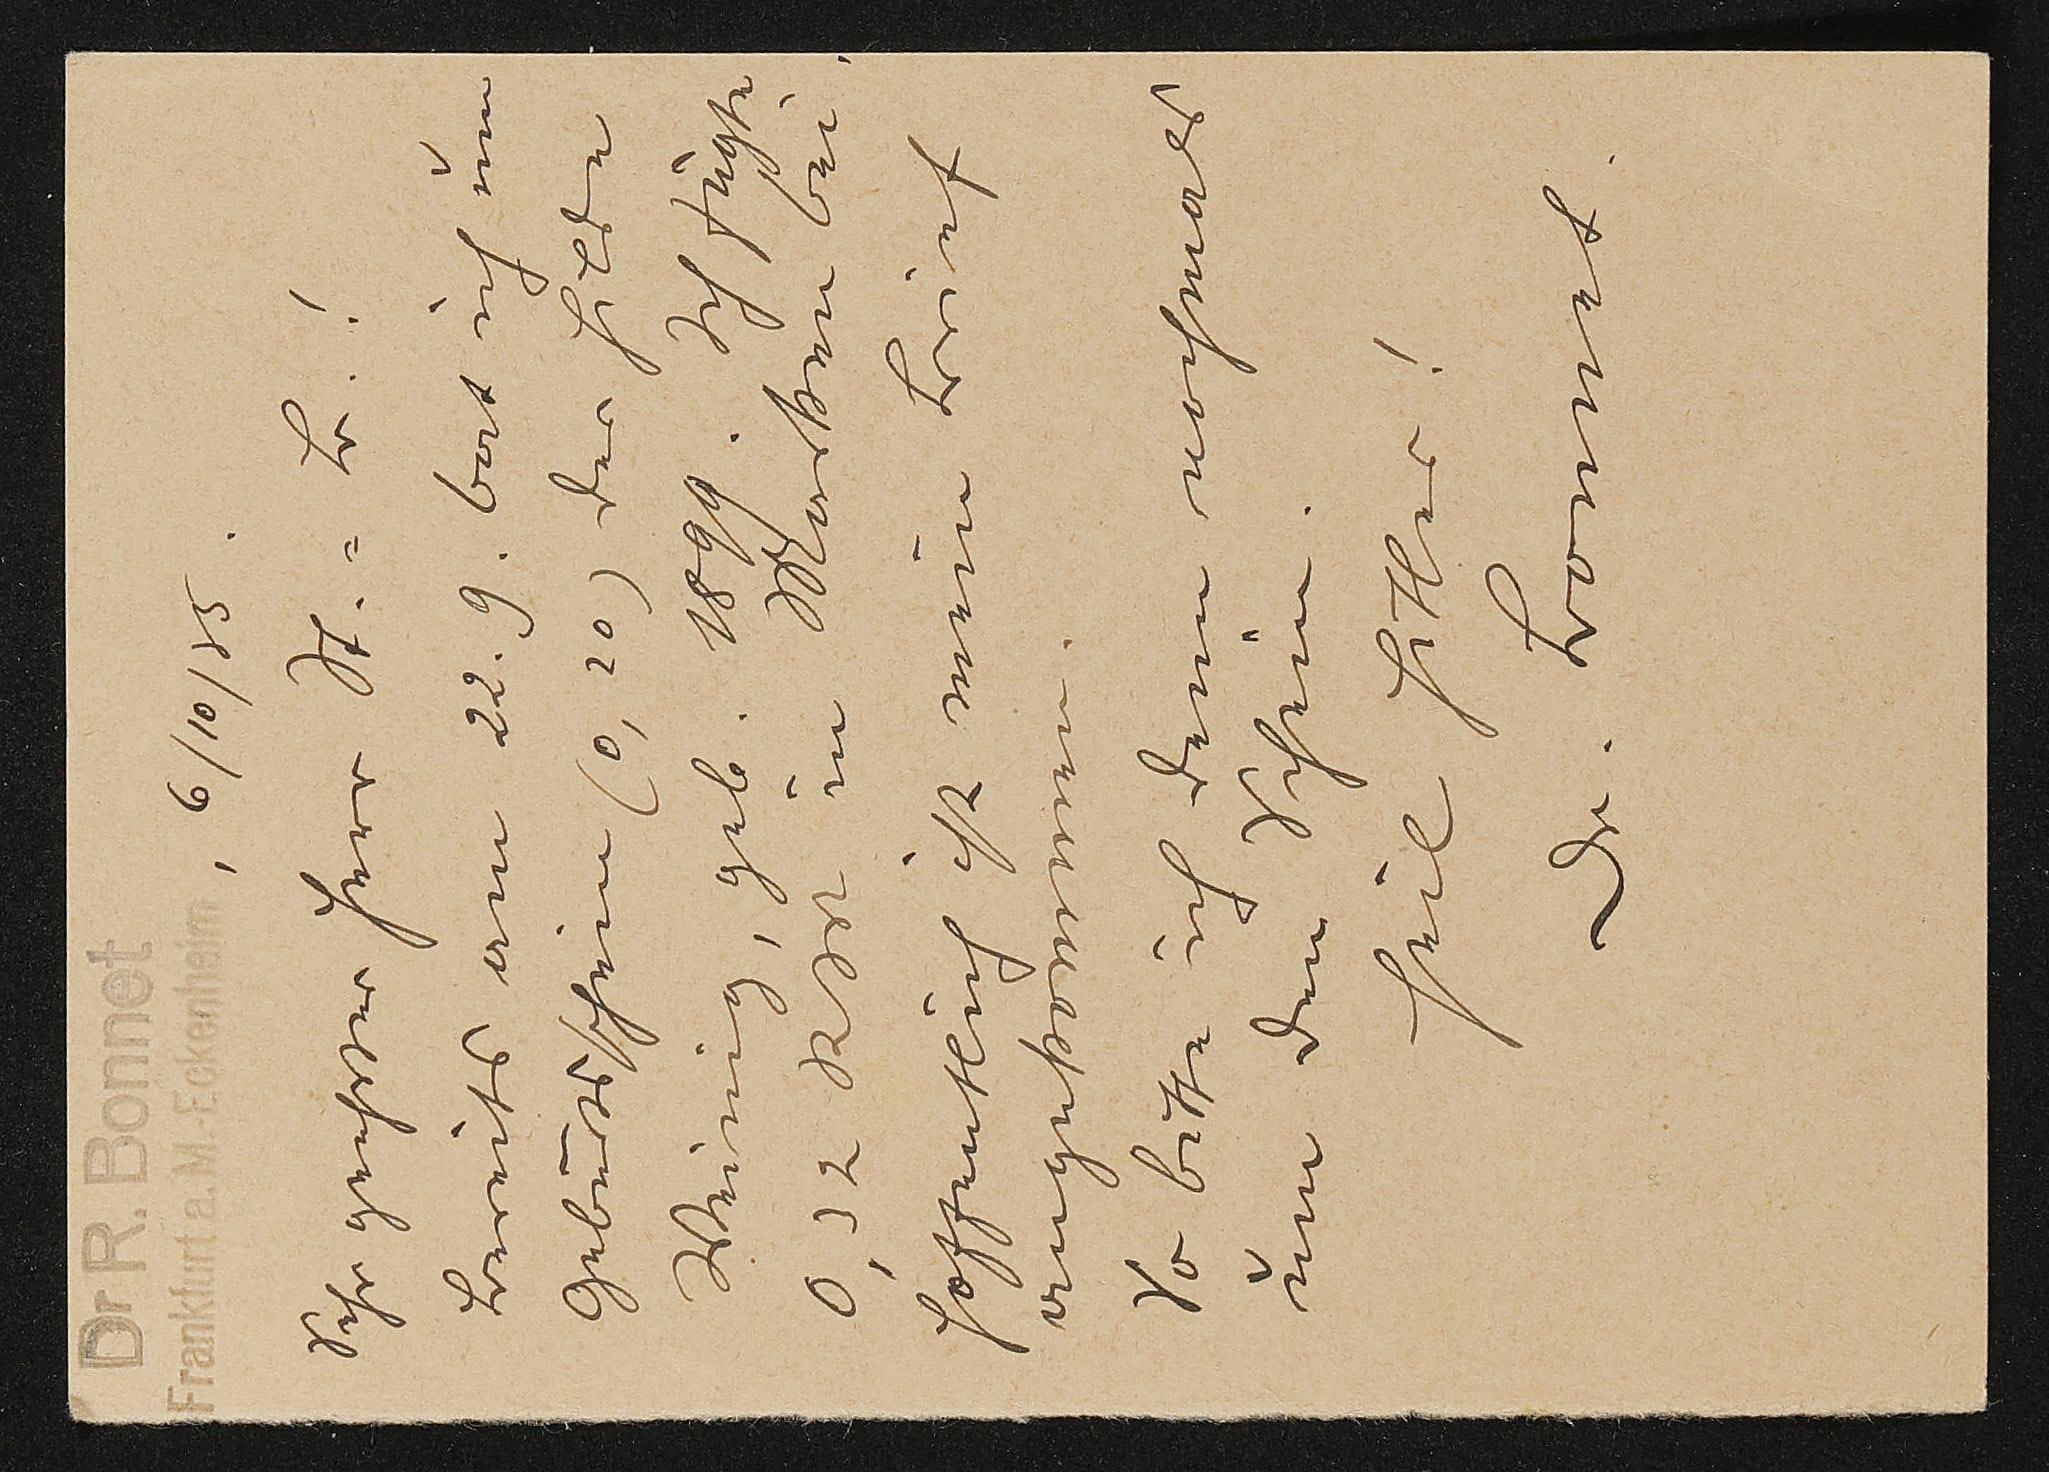 Dr R. Bonnet
Frankfurt a. M.-Eckenheim, 6/10/35.
Sehr geehrter Herr St.-B.!
Bereits am 22.9. bat ich um
Geburtsschein (0,20) der Hilde
Wenning, geb. 1899. Ich fügte
0,32 RM in Marken bei.
Hoffentlich ist mein Brief
angekommen.
So bitte ich denn nochmals
um den Schein.
Heil Hitler!
Dr. Bonnet.